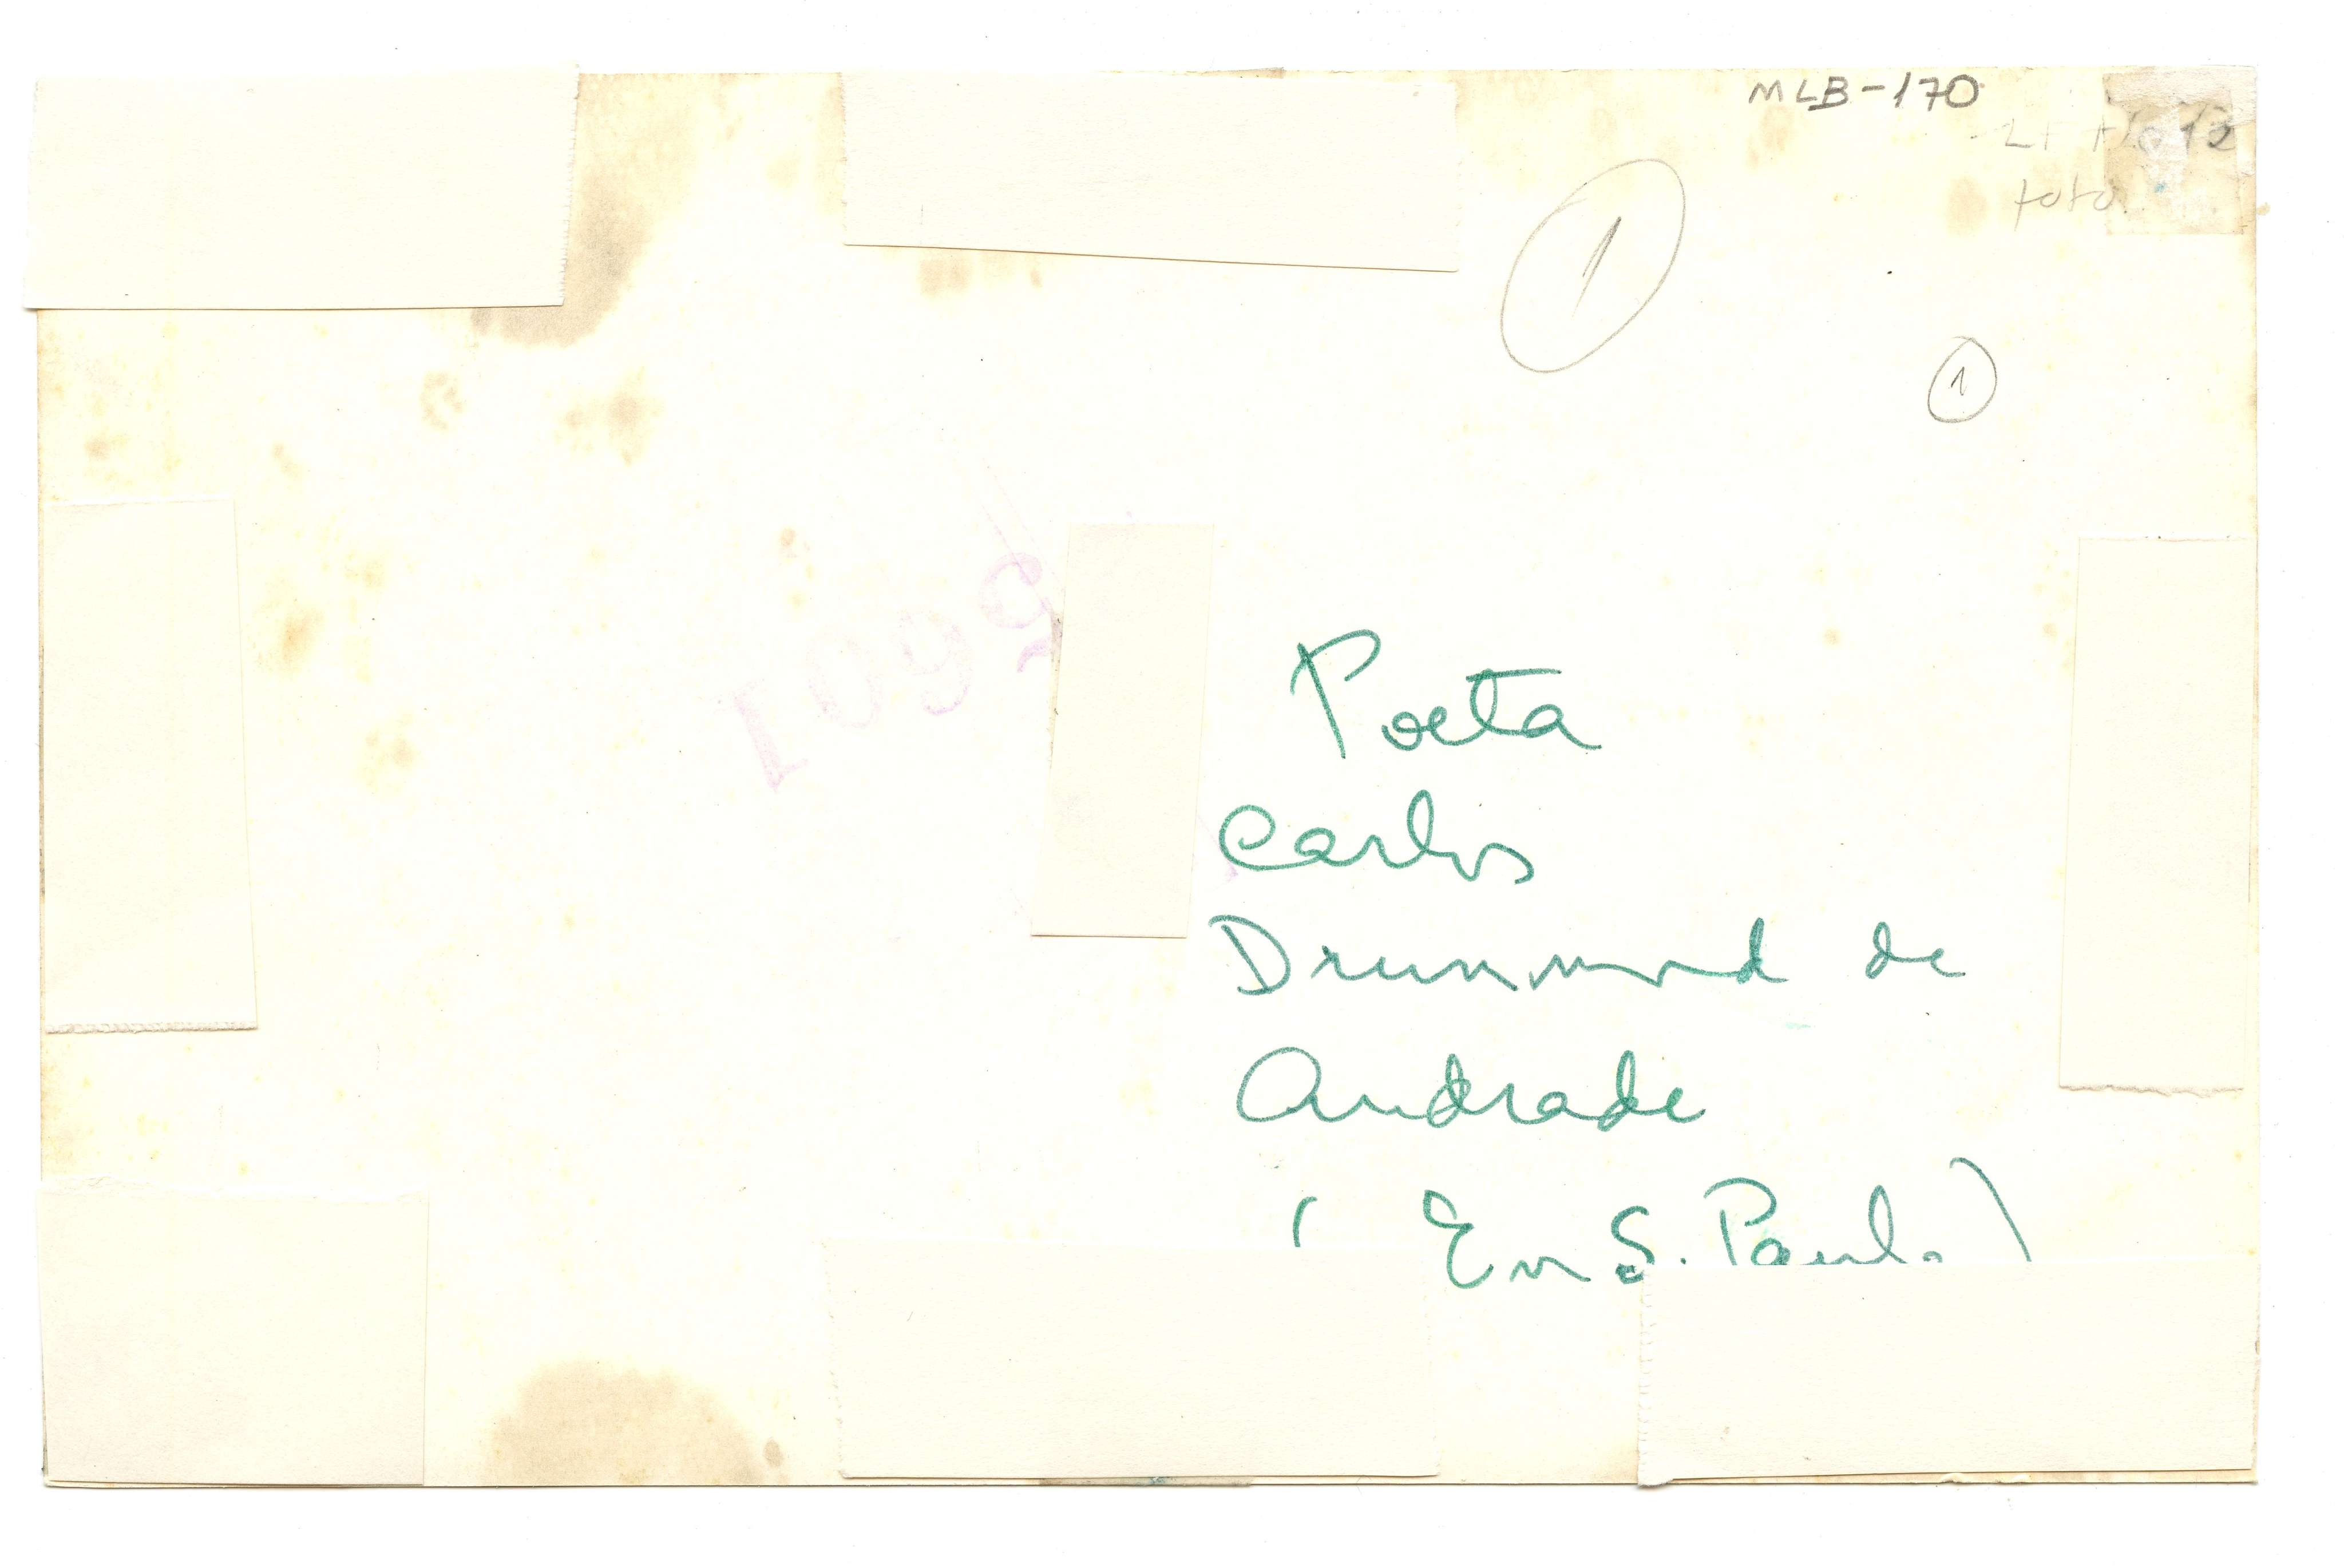 MLB-170
foto
1
1
Poeta
Carlos
Drummond de
Andrade
(Em S. Paulo)